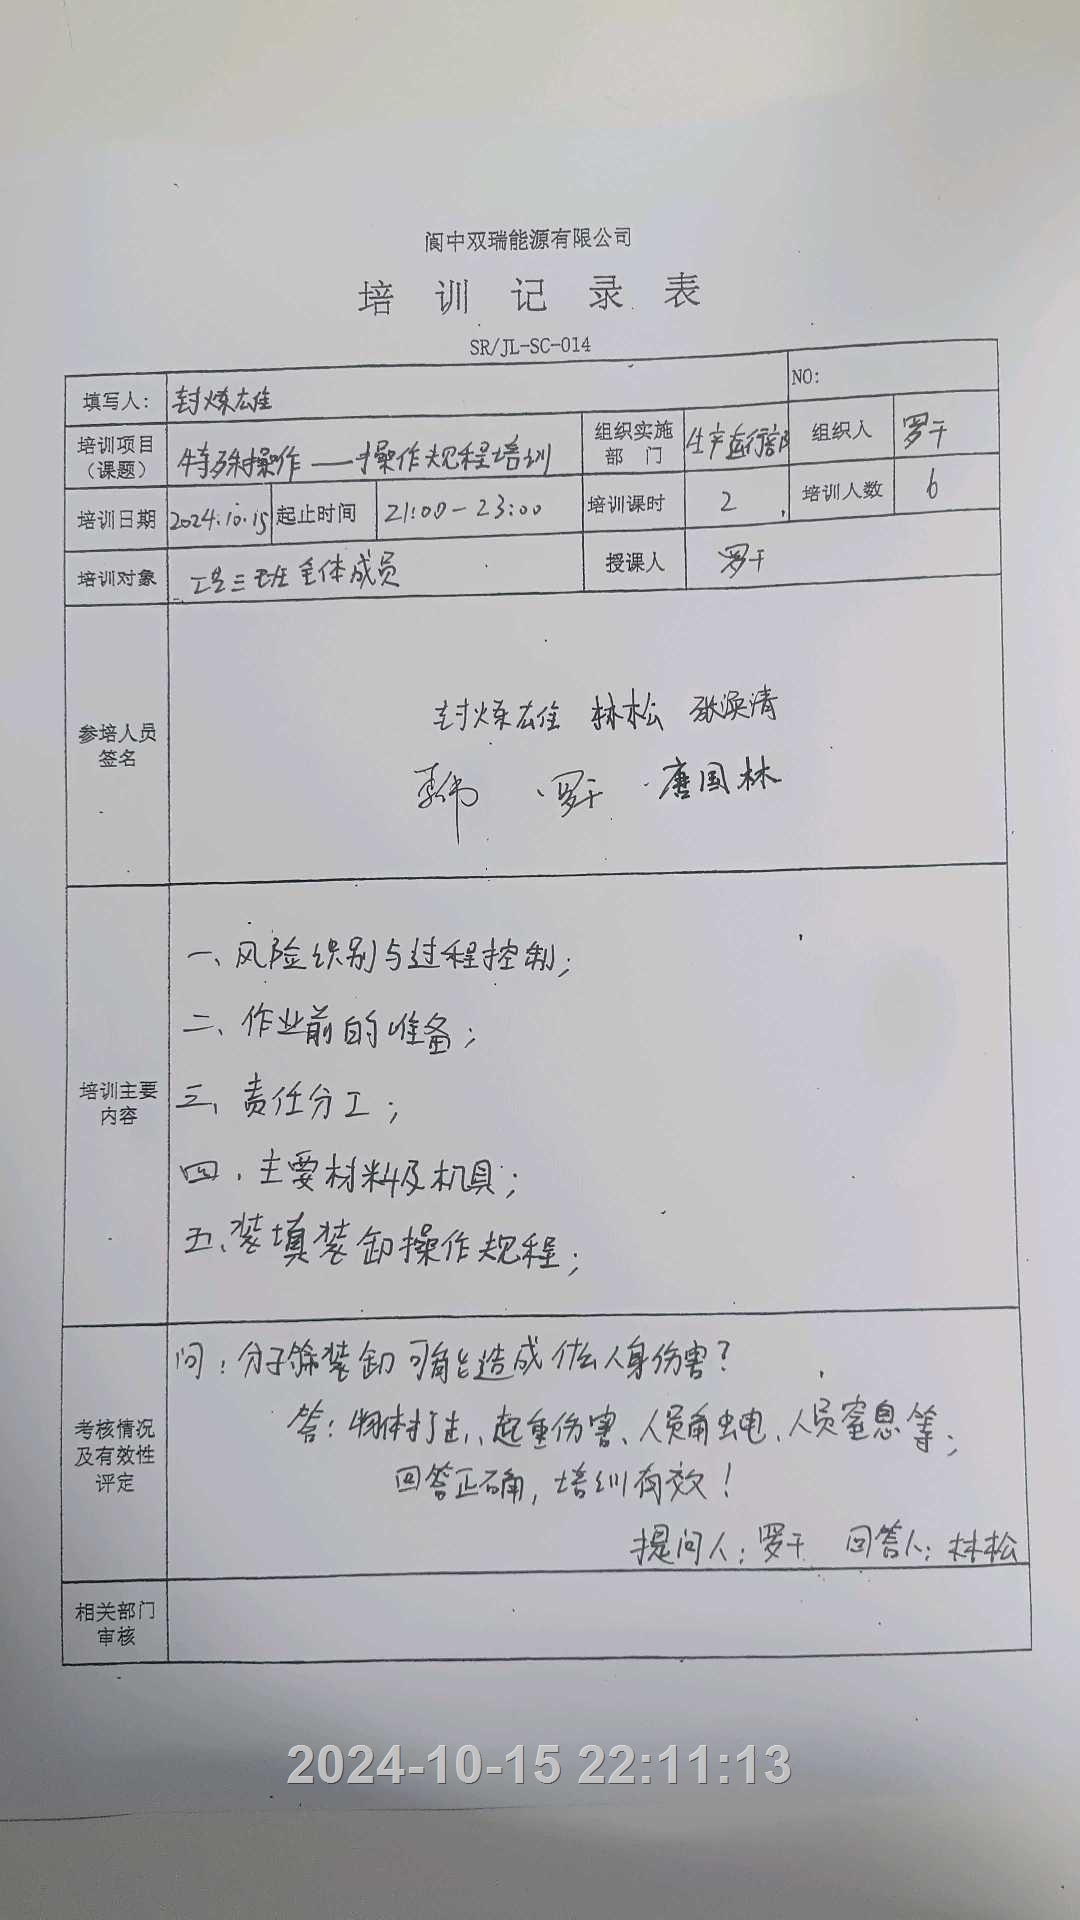 阆中双瑞能源有限公司
培训记录表
SR/JL-SC-014
填写人: 封炼雄 NO:
培训项目(课题) 特殊操作——操作规程培训 组织实施部门 生产运行部 组织人 罗千
培训日期 2024.10.15 起止时间 21:00-23:00 培训课时 2 培训人数 6
培训对象 三班全体成员 授课人 罗千
参培人员签名
封炼雄 林松 张涣清
李伟 罗千 唐国林
培训主要内容
一、风险识别与过程控制;
二、作业前的准备;
三、责任分工;
四、主要材料及机具;
五、装填装卸操作规程;
考核情况及有效性评定
问:分子筛装卸可能造成什么人身伤害?
答:物体打击、起重伤害、人员触电、人员窒息等;
回答正确,培训有效!
提问人:罗千 回答人:林松
相关部门审核
2024-10-15 22:11:13